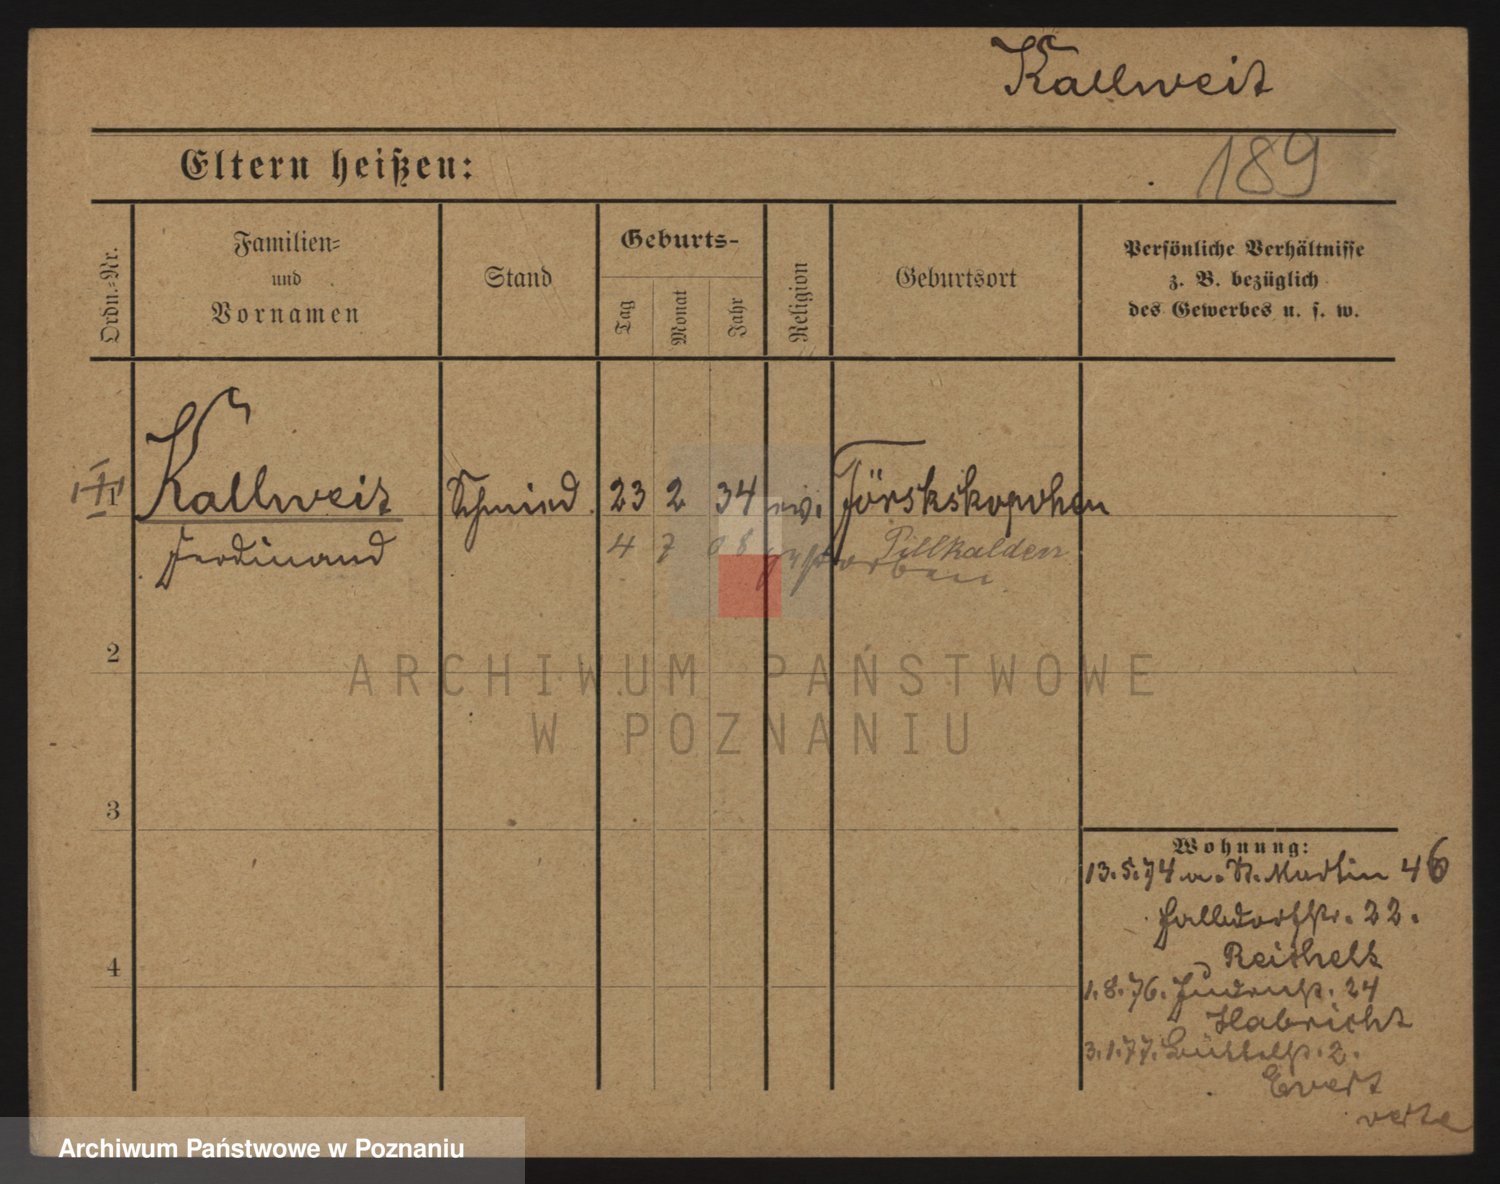 Kallweit
189
Eltern heißen:
Ordn.-Nr.
Familien-
und
Vornamen
Stand
Geburts-
Tag
Monat
Jahr
Religion
Geburtsort
Persönliche Verhältnisse
z. B. bezüglich
des Gewerbes u. s. w.
1 Kallweit Schmied. 23 2 34 ev.
Ferdinand 4 7 08 gestorben Pillkalden
2
3
4
Wohnung:
13.5.74 a. St. Martin 46
Halbdorfstr. 22.
Reichelt
1.8.76. Judenstr. 24
Habricht
3.1.77. Büttelstr. 2.
Evert
verte
ARCHIWUM PAŃSTWOWE
W POZNANIU
Archiwum Państwowe w Poznaniu